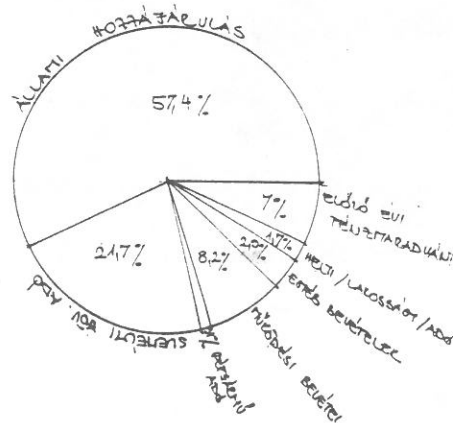 ÁLLAMI HOZZÁJÁRULÁS
57,4%
7%
ELŐZŐ ÉVI
PÉNZMARADVÁNY
1,7%
HELYI/LAKOSSÁGI/ADÓ
2,0%
EGYÉB BEVÉTELEK
8,2%
MŰKÖDÉSI BEVÉTEL
ADÓ
21,7%
SZEMÉLYI JÖV. ADÓ